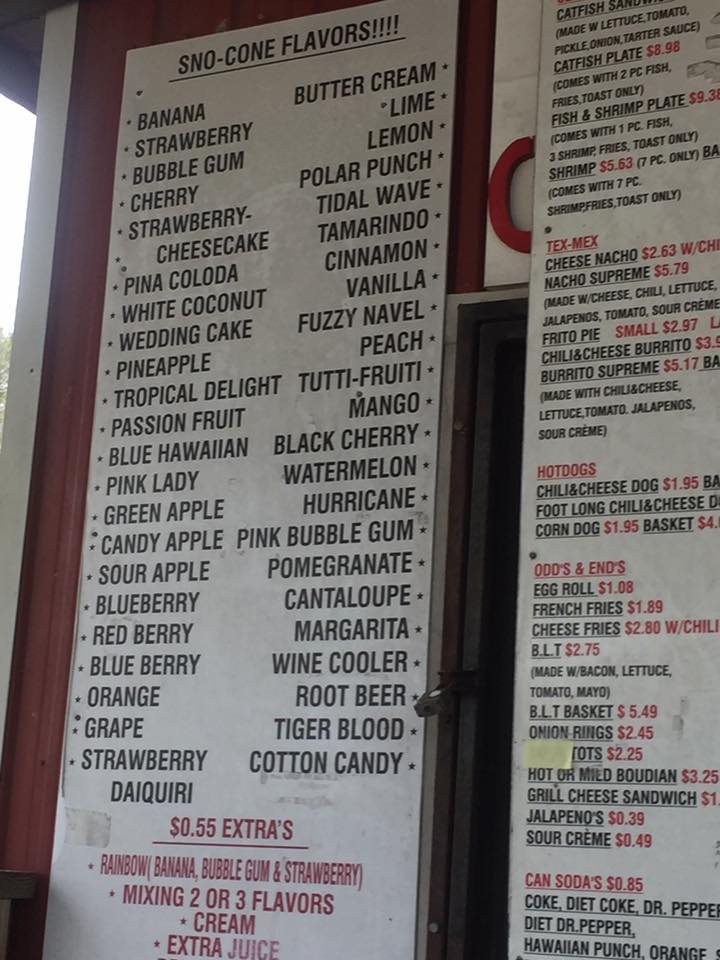 SNO-CONE FLAVORS!!!!
* BANANA
* STRAWBERRY
* BUBBLE GUM
* CHERRY
* STRAWBERRY-
* CHEESECAKE
* PINA COLODA
* WHITE COCONUT
* WEDDING CAKE
* PINEAPPLE
* TROPICAL DELIGHT
* PASSION FRUIT
* BLUE HAWAIIAN
* PINK LADY
* GREEN APPLE
* CANDY APPLE
* SOUR APPLE
* BLUEBERRY
* RED BERRY
* BLUE BERRY
* ORANGE
* GRAPE
* STRAWBERRY
DAIQUIRI
BUTTER CREAM *
LIME *
LEMON *
POLAR PUNCH *
TIDAL WAVE *
TAMARINDO *
CINNAMON *
VANILLA *
FUZZY NAVEL *
PEACH *
TUTTI-FRUITI *
MANGO *
BLACK CHERRY *
WATERMELON *
HURRICANE *
PINK BUBBLE GUM *
POMEGRANATE *
CANTALOUPE *
MARGARITA *
WINE COOLER *
ROOT BEER *
TIGER BLOOD *
COTTON CANDY *
$0.55 EXTRA'S
* RAINBOW( BANANA, BUBBLE GUM & STRAWBERRY)
* MIXING 2 OR 3 FLAVORS
* CREAM
* EXTRA JUICE
CATFISH
(MADE W LETTUCE,TOMATO,
PICKLE,ONION,TARTER SAUCE)
CATFISH PLATE $8.98
(COMES WITH 2 PC FISH,
FRIES,TOAST ONLY)
FISH & SHRIMP PLATE $9.38
(COMES WITH 1 PC. FISH,
3 SHRIMP, FRIES, TOAST ONLY)
SHRIMP $5.63 (7 PC. ONLY) BA
(COMES WITH 7 PC.
SHRIMP,FRIES,TOAST ONLY)
TEX-MEX
CHEESE NACHO $2.63 W/CHI
NACHO SUPREME $5.79
(MADE W/CHEESE, CHILI, LETTUCE,
JALAPENOS, TOMATO, SOUR CRÈME
FRITO PIE SMALL $2.97 L
CHILI&CHEESE BURRITO $3.9
BURRITO SUPREME $5.17 BA
(MADE WITH CHILI&CHEESE,
LETTUCE,TOMATO. JALAPENOS,
SOUR CRÈME)
HOTDOGS
CHILI&CHEESE DOG $1.95 BA
FOOT LONG CHILI&CHEESE D
CORN DOG $1.95 BASKET $4.
ODD'S & END'S
EGG ROLL $1.08
FRENCH FRIES $1.89
CHEESE FRIES $2.80 W/CHILI
B.L.T $2.75
(MADE W/BACON, LETTUCE,
TOMATO, MAYO)
B.L.T BASKET $ 5.49
ONION RINGS $2.45
TOTS $2.25
HOT OR MILD BOUDIAN $3.25
GRILL CHEESE SANDWICH $1.
JALAPENO'S $0.39
SOUR CRÈME $0.49
CAN SODA'S $0.85
COKE, DIET COKE, DR. PEPPER
DIET DR.PEPPER,
HAWAIIAN PUNCH, ORANGE